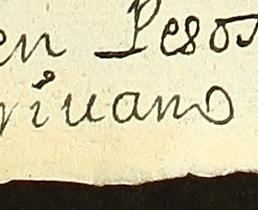 en Pesos
rivano